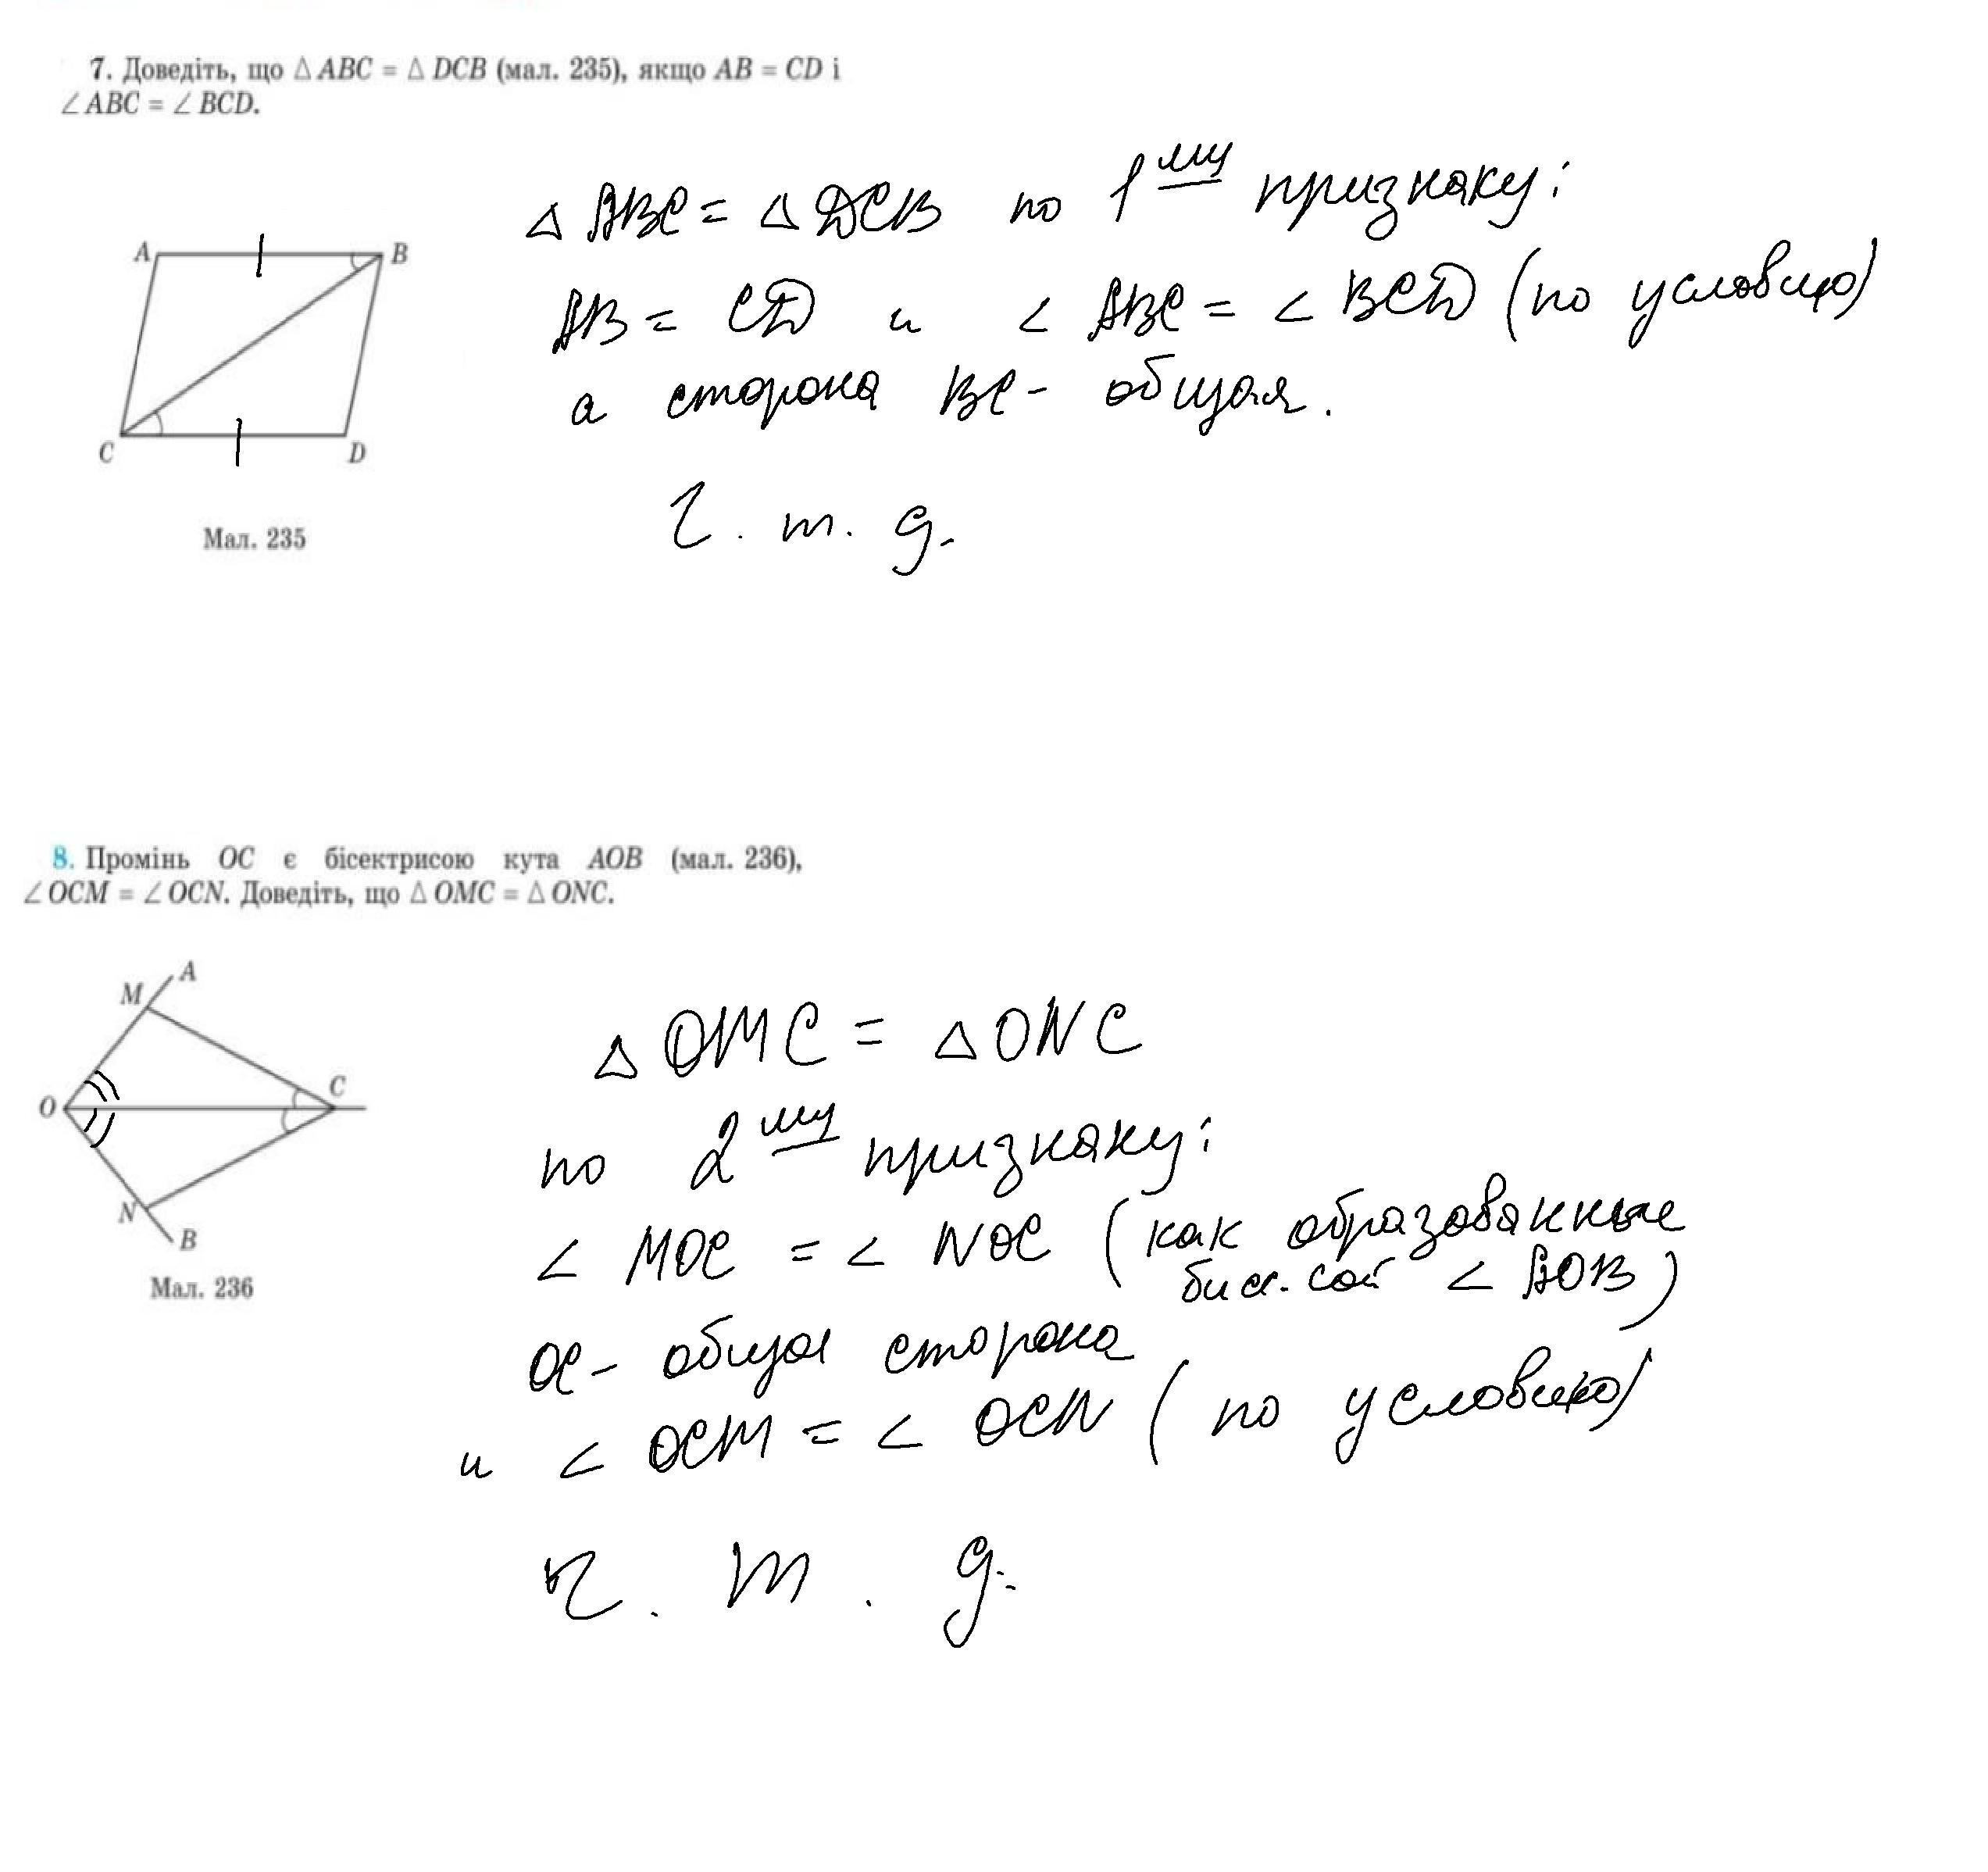 7. Доведіть, що △ ABC = △ DCB (мал. 235), якщо AB = CD і
∠ ABC = ∠ BCD.
△ ABC = △ DCB по 1му признаку:
AB = CD и ∠ ABC = ∠ BCD (по условию)
а сторона BC - общая.
A
B
C
D
Мал. 235
Ч. т. д.
8. Промінь OC є бісектрисою кута AOB (мал. 236),
∠ OCM = ∠ OCN. Доведіть, що △ OMC = △ ONC.
A
M
O
C
N
B
Мал. 236
△ OMC = △ ONC
по 2му признаку:
∠ MOC = ∠ NOC (как образованные
бис-сой ∠ AOB)
OC - общая сторона
и ∠ OCM = ∠ OCN (по условию)
ч. т. д.